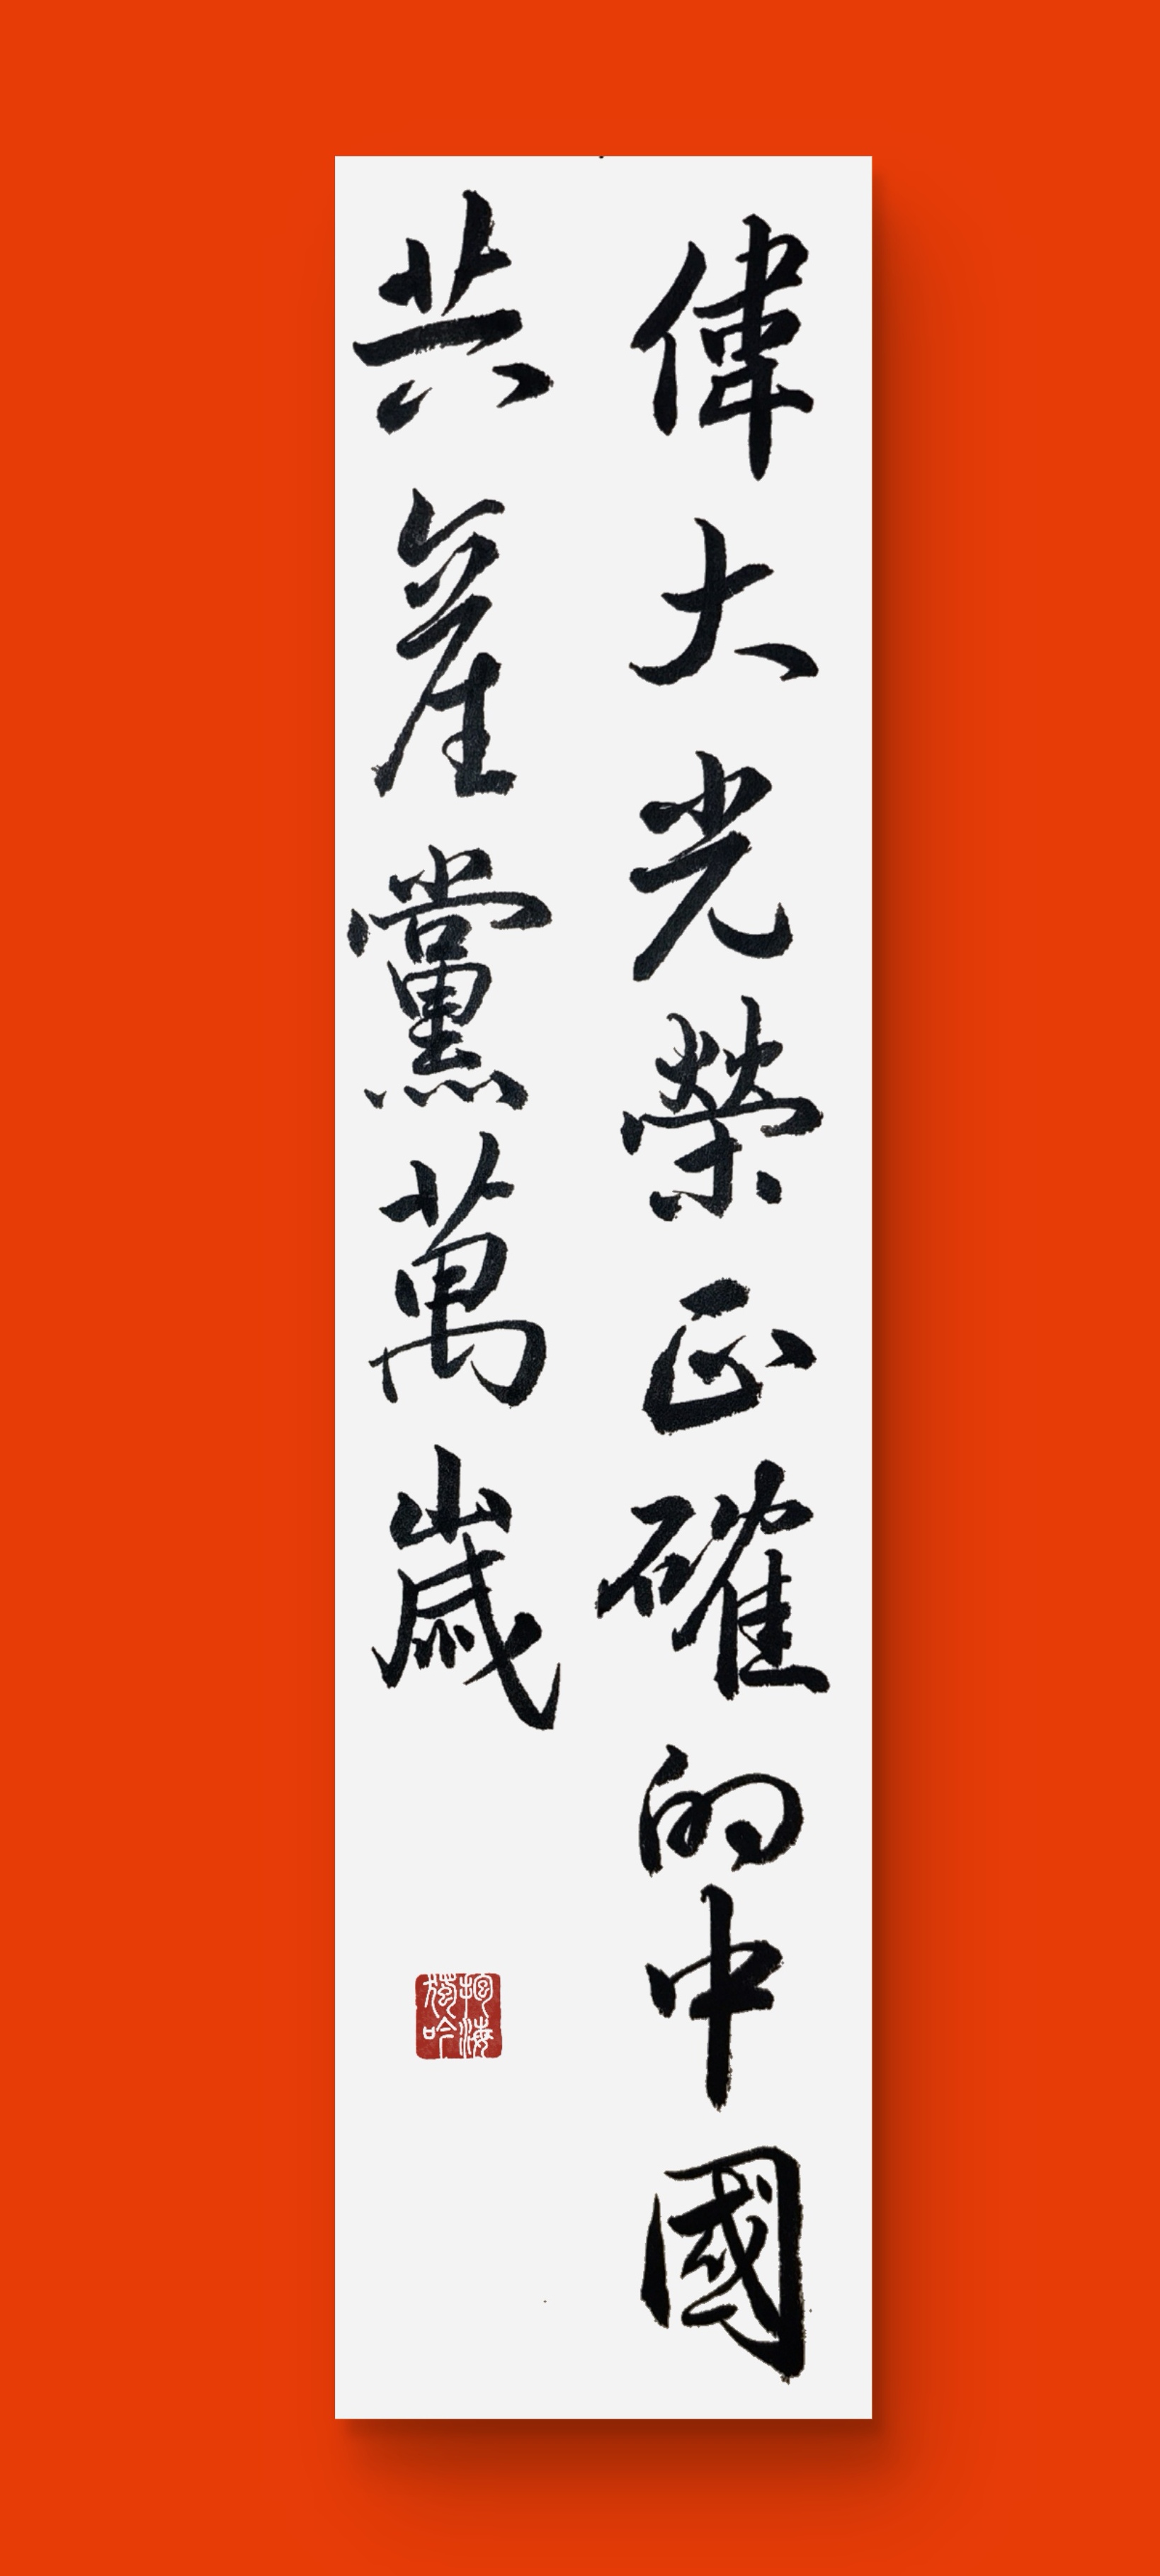 偉大光榮正確的中國
共產黨萬歲